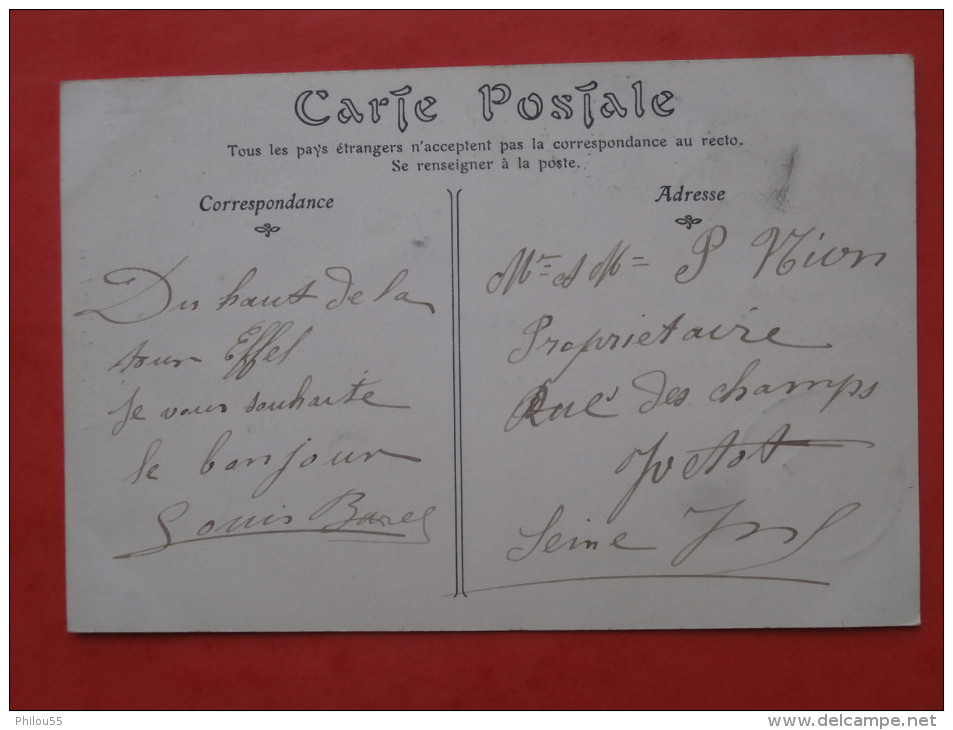 Carte Postale
Tous les pays étrangers n'acceptent pas la correspondance au recto.
Se renseigner à la poste.
Correspondance
Du haut de la
tour Effel
je vous souhaite
le bonjour
Louis
Adresse
Mr P Nion
Propriétaire
Rue des champs
Yvetot
Seine Inf
Philou55
www.delcampe.net